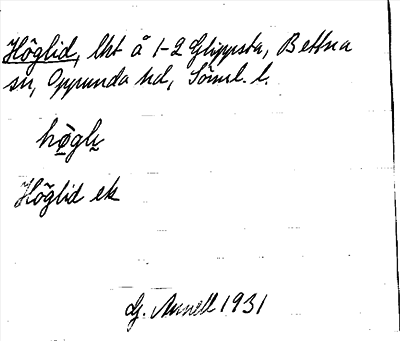 Höglid, lht å 1-2 Glippsta, Bettna
sn, Oppunda hd, Söml. l.
högli
Höglid ek
G. Annell 1931